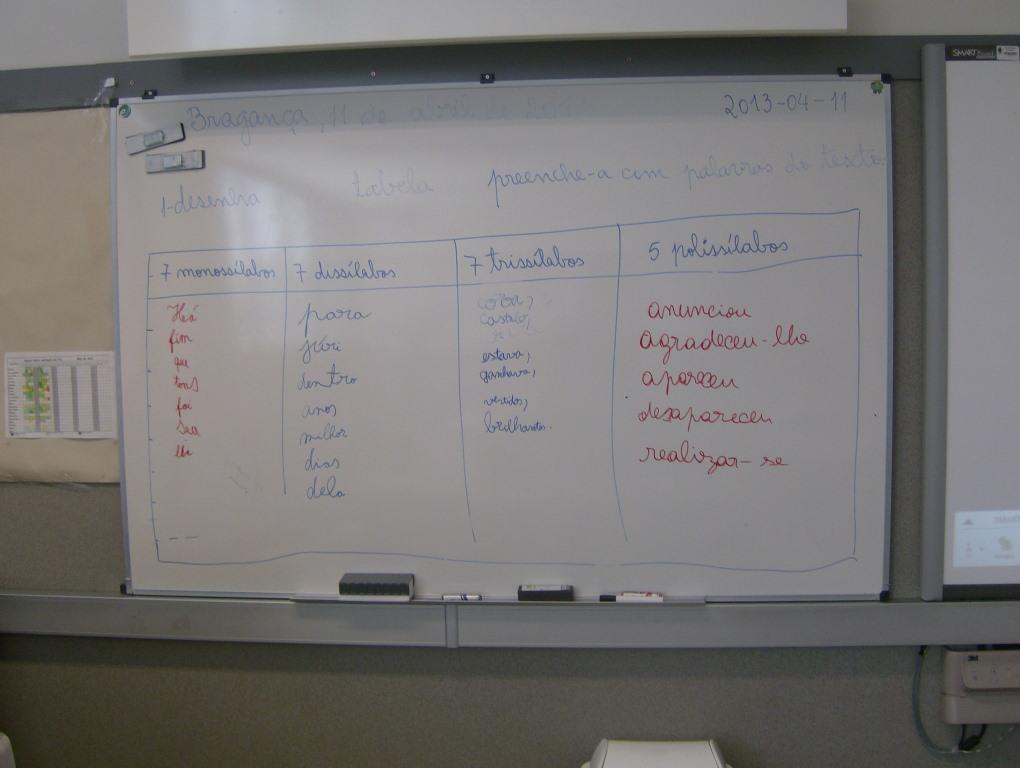 SMART
Bragança, 11 de abril de 2013
2013-04-11
1-desenha tabela preenche-a com palavras do texto
7 monossílabos 7 dissílabos 7 trissílabos 5 polissílabos
Há
fim
que
foi
seu
para
júri
dentro
anos
milhor
dias
dela
estava,
ganhava,
vestidos,
brilhantes.
anunciou
agradeceu-lhe
apareceu
desapareceu
realizar-se
SMART
3M